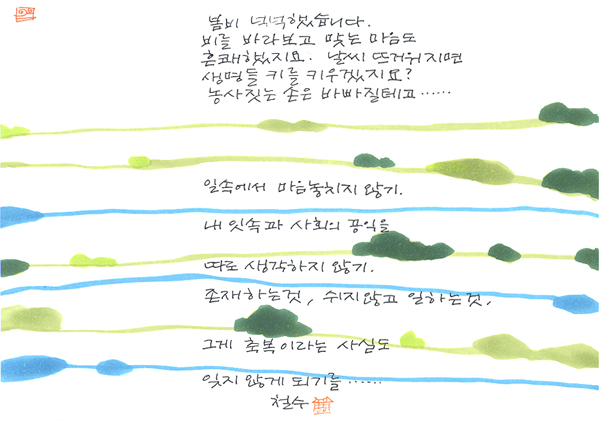 봄비 넉넉했습니다.
비를 바라보고 맞는 마음도
흔쾌했지요. 날씨 뜨거워지면
생명들 키를 키우겠지요?
농사짓는 손은 바빠질테고……
일속에서 마음놓치지 않기.
내 잇속과 사회의 공익을
따로 생각하지 않기.
존재하는것, 쉬지않고 일하는것.
그게 축복이라는 사실도
잊지 않게 되기를……
철수